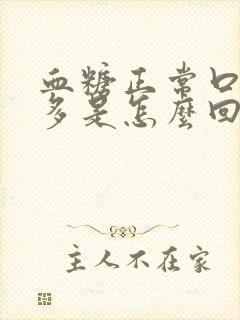 血糖正常口
多是怎麼回
主人不在家